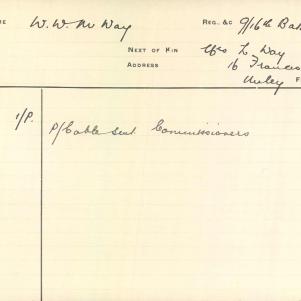 ME W. W. M Way REG. &C 9/16th Bat
NEXT OF KIN Mrs L. Way
ADDRESS 16 Francis
Unley F
1/P. P/Cable sent Commissioners